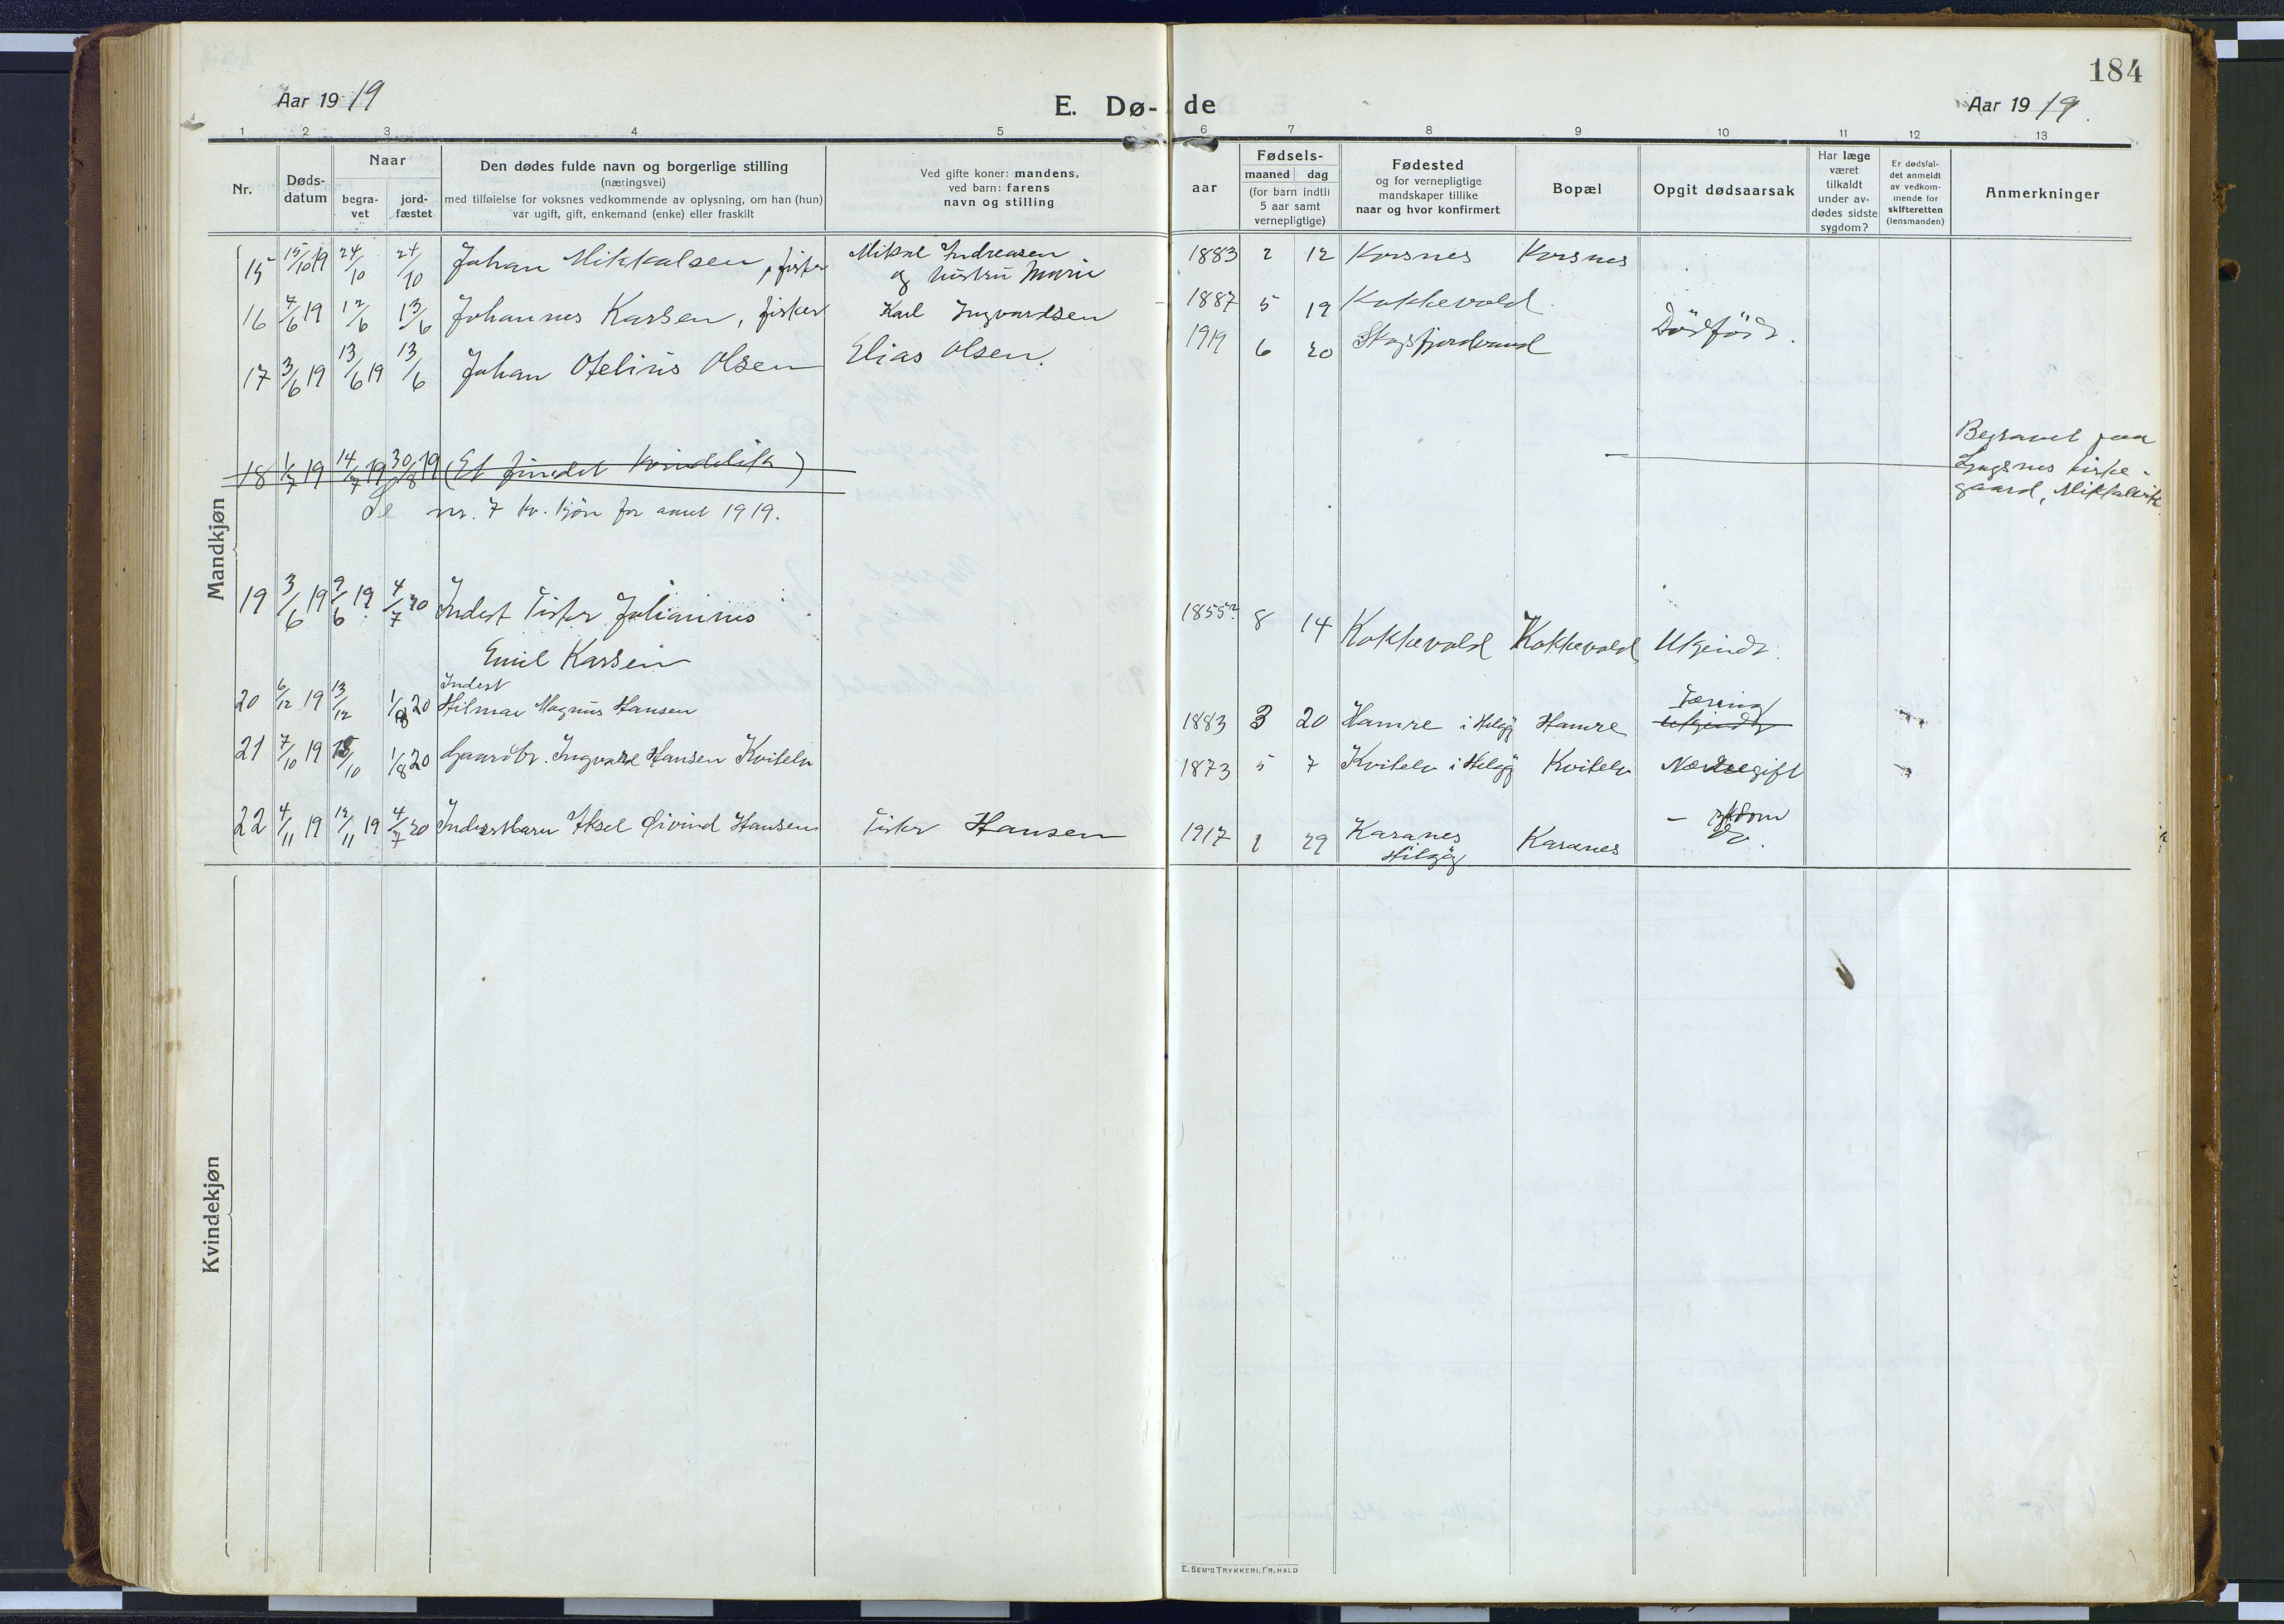 184
Aar 1919
E. Dø- de
Aar 1919.
1 2 3 4 5 6 7 8 9 10 11 12 13
Nr.
Døds-
datum
Naar
begra-
vet
jord-
fæstet
Den dødes fulde navn og borgerlige stilling
(næringsvei)
med tilføielse for voksnes vedkommende av oplysning, om han (hun)
var ugift, gift, enkemand (enke) eller fraskilt
Ved gifte koner: mandens,
ved barn: farens
navn og stilling
aar
Fødsels-
maaned dag
(for barn indtil
5 aar samt
vernepligtige)
Fødested
og for vernepligtige
mandskaper tillike
naar og hvor konfirmert
Bopæl
Opgit dødsaarsak
Har læge
været
tilkaldt
under av-
dødes sidste
sygdom?
Er dødsfal-
det anmeldt
av vedkom-
mende for
skifteretten
(lensmanden)
Anmerkninger
Mandkjøn
15 15/10 19 24/10 24/10 Johan Mikkalsen, fisker Mikal Andreasen
og hustru Marie 1883 2 12 Korsnes Korsnes
16 4/6 19 12/6 13/6 Johannes Karlsen, fisker Karl Ingvardsen 1887 5 19 Kokkevold
17 3/6 19 13/6 19 13/6 Johan Otelius Olsen Elias Olsen. 1919 6 20 Skogsfjordvand Dödföd.
18 1/7 19 14/7 19 30/8 19 (Et fundet kvindelik)
Begravet paa
kirke-
gaard, Mikkelvik
Se nr. 7 kv. kjön for aaret 1919.
19 3/6 19 9/6 19. 4/7 20 Inderst Fisker Julianus
Emil Karlsen 1855? 8 14 Kokkevold Kokkevold Ukjendt.
20 6/12 19 13/12 1/8 20 Inderst
Hilmar Magnus Hansen 1883 3 20 Hamre i Helgöy Hamre Tæring
Ukjendt
21 7/10 19 15/10 1/8 20 Gaardbr. Ingvald Hansen Kvitelv 1873 5 7 Kvitelv i Helgöy Kvitelv
22 4/11 19 12/11 19 4/7 20 Inderstbarn Aksel Øivind Hansen Fisker Hansen 1917 1 29 Karanes
Helgöy Karanes
Kvindekjøn
E. SEM'S TRYKKERI, FR.HALD